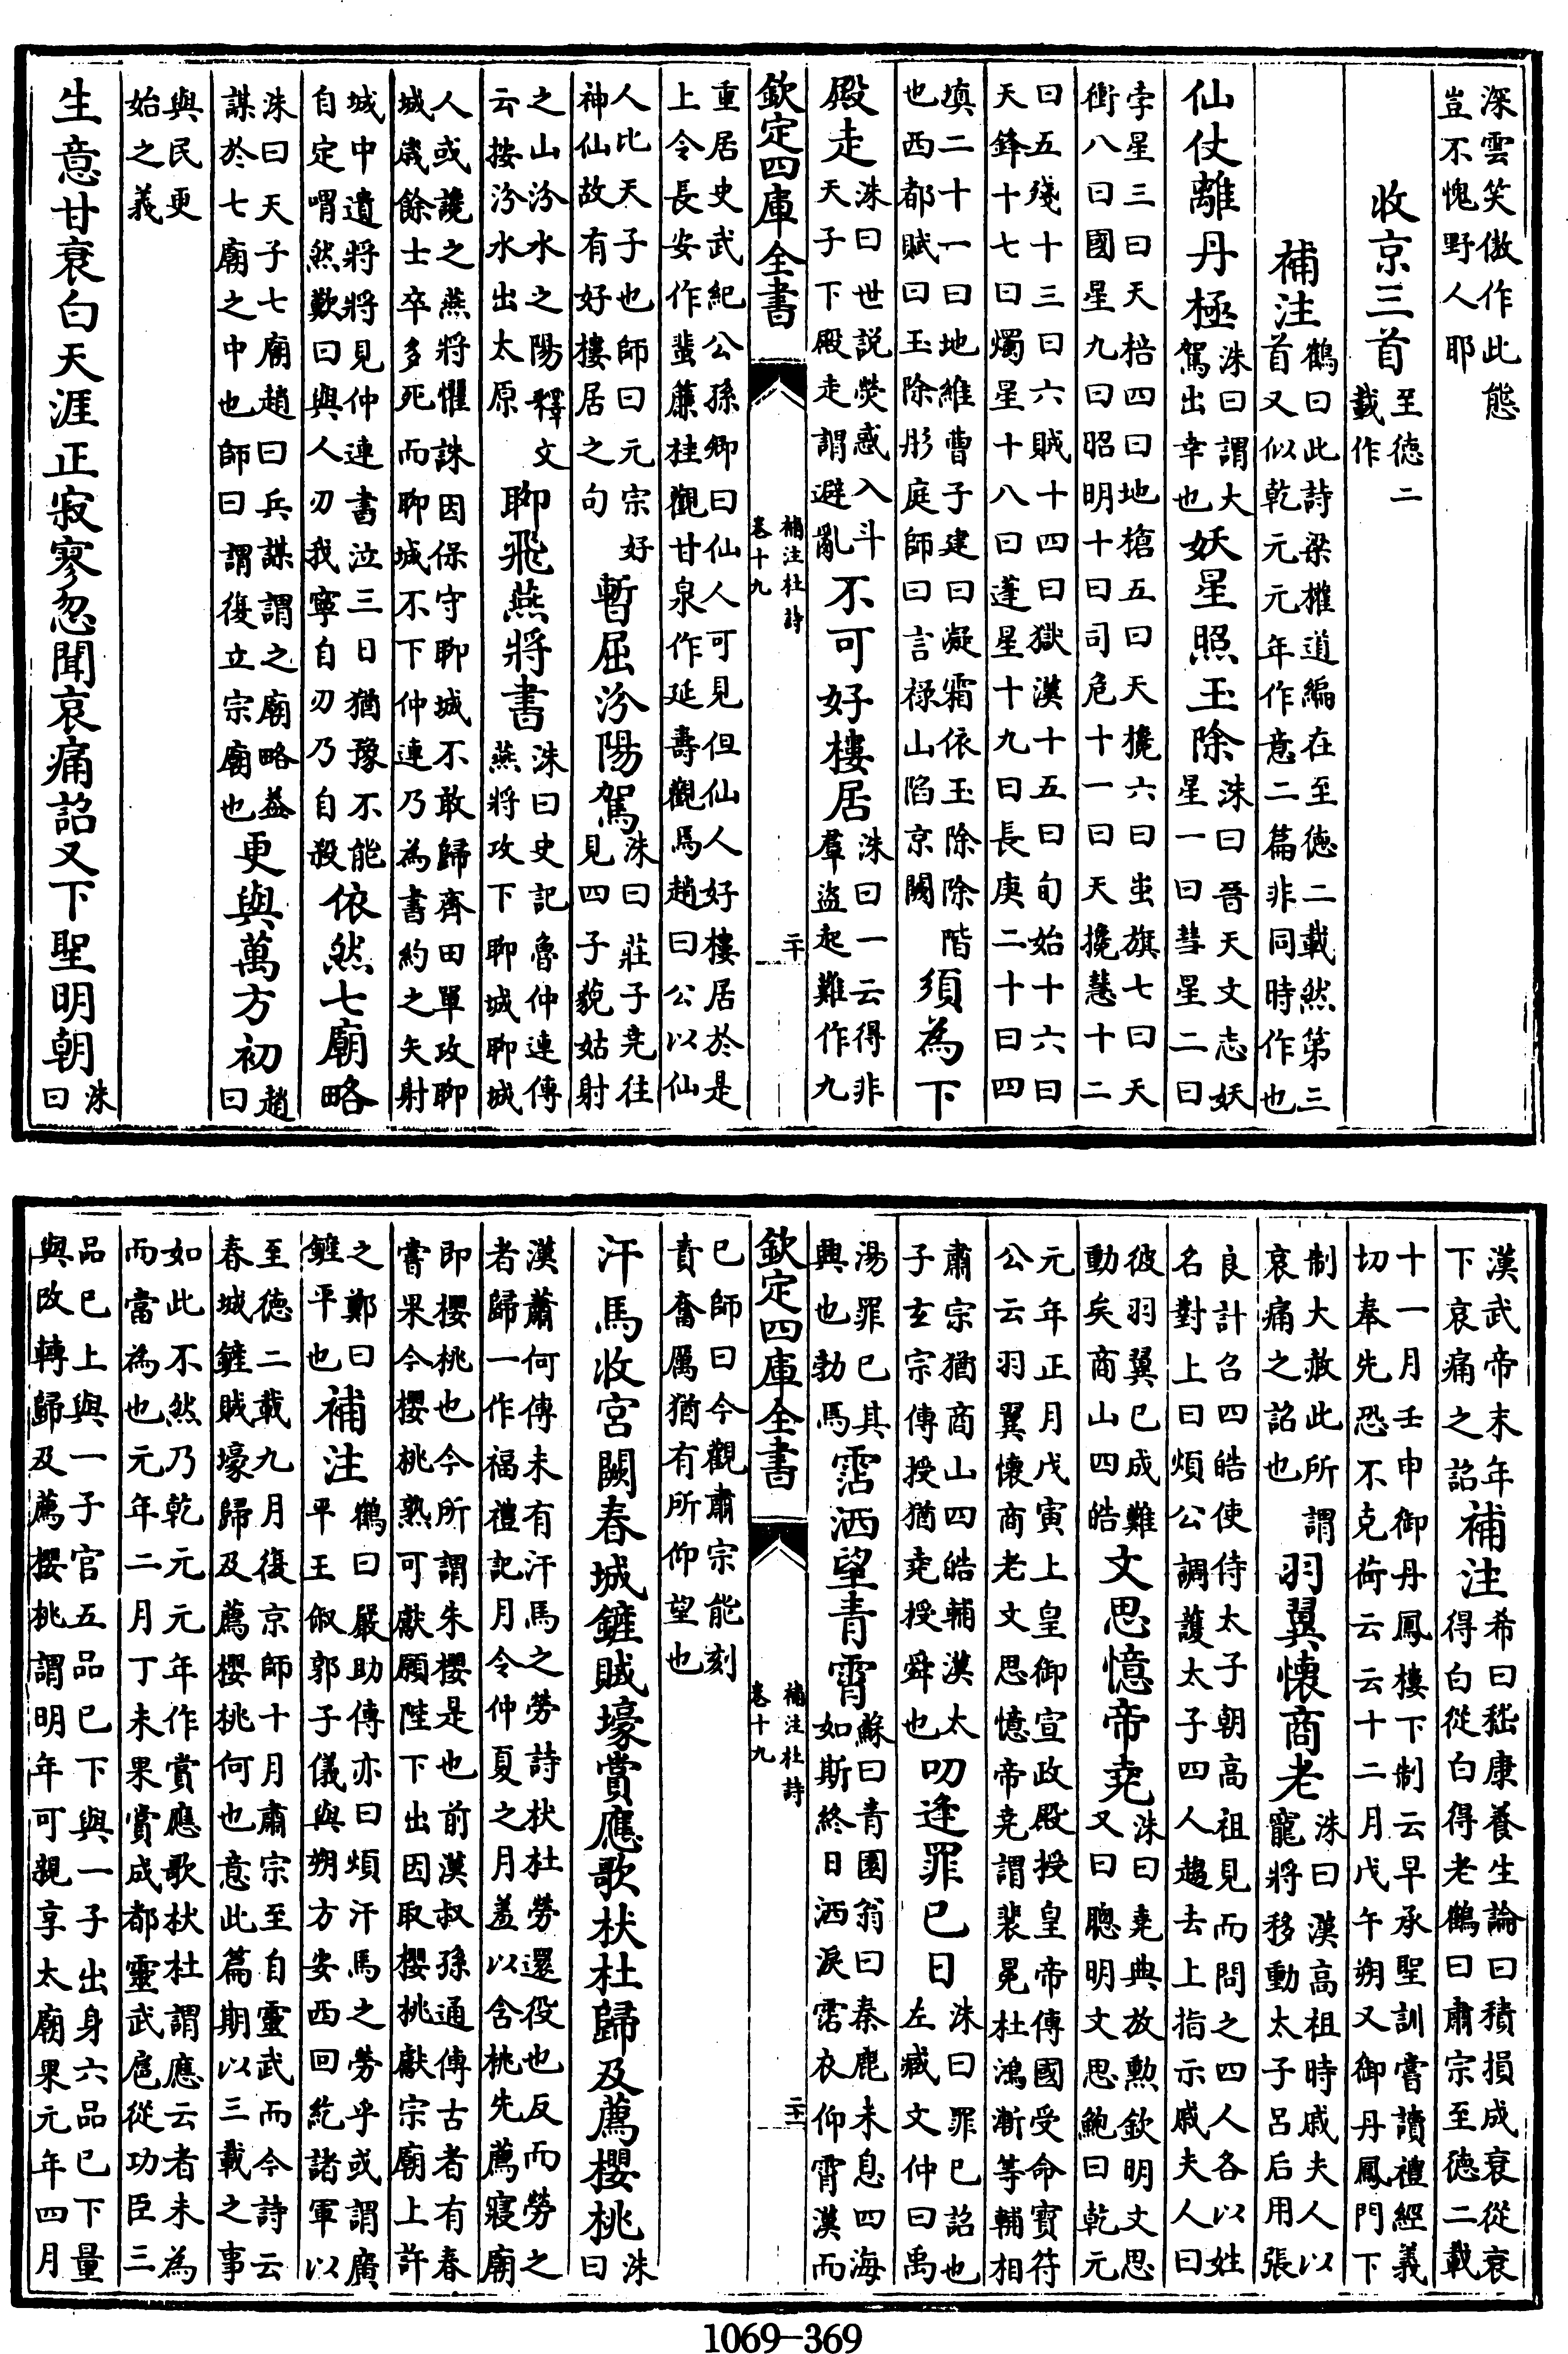 深雲笑傲作此態
豈不愧野人耶
收京三首至德二載作
補注鶴曰此詩梁權道編在至德二載然第三首又似乾元元年作意二篇非同時作也
仙仗離丹極洙曰謂大駕出幸也妖星照玉除洙曰晉天文志妖星一曰彗星二曰
孛星三曰天棓四曰地槍五曰天攙六曰蚩旗七曰天
衝八曰國星九曰昭明十曰司危十一曰天攙慧十二
曰五殘十三曰六賊十四曰獄漢十五曰旬始十六曰
天鋒十七曰燭星十八曰蓬星十九曰長庚二十曰四
填二十一曰地維曹子建曰凝霜依玉除除階也西都賦曰玉除彤庭師曰言祿山陷京闕須為下
殿走洙曰世說熒惑入斗天子下殿走謂避亂不可好樓居洙曰一云得非羣盜起難作九
欽定四庫全書 補注杜詩 卷十九 二十
重居史武紀公孫卿曰仙人可見但仙人好樓居於是
上令長安作蜚廉桂觀甘泉作延壽觀馬趙曰公以仙
人比天子也師曰元宗好神仙故有好樓居之句暫屈汾陽駕洙曰莊子堯往見四子藐姑射
之山汾水之陽釋文云按汾水出太原聊飛燕將書洙曰史記魯仲連傳燕將攻下聊城聊城
人或讒之燕將懼誅因保守聊城不敢歸齊田單攻聊
城歲餘士卒多死而聊城不下仲連乃為書約之矢射
城中遺將將見仲連書泣三日猶豫不能自定喟然歎曰與人刃我寧自刃乃自殺依然七廟略
洙曰天子七廟趙曰兵謀謂之廟略蓋謀於七廟之中也師曰謂復立宗廟也更與萬方初趙曰
與民更
始之義
生意甘衰白天涯正寂寥忽聞哀痛詔又下聖明朝洙曰
漢武帝末年下哀痛之詔補注希曰嵇康養生論曰積損成衰從衰得白從白得老鶴曰肅宗至德二載
十一月壬申御丹鳳樓下制云早承聖訓嘗讀禮經義
切奉先恐不克荷云云十二月戊午朔又御丹鳳門下
制大赦此所謂哀痛之詔也羽翼懷商老洙曰漢高祖時戚夫人以寵將移動太子呂后用張
良計召四皓使侍太子朝高祖見而問之四人各以姓
名對上曰煩公調護太子四人趨去上指示戚夫人曰
彼羽翼已成難動矣商山四皓文思憶帝堯洙曰堯典放勲欽明文思又曰聰明文思鮑曰乾元
元年正月戊寅上皇御宣政殿授皇帝傳國受命寳符
公云羽翼懷商老文思憶帝堯謂裴冕杜鴻漸等輔相
肅宗猶商山四皓輔漢太子玄宗傳授猶堯授舜也叨逢罪己日洙曰罪己詔也左臧文仲曰禹
湯罪己其興也勃焉霑洒望青霄蘇曰青園翁曰秦鹿未息四海如斯終日洒淚霑衣仰霄漢而
欽定四庫全書 補注杜詩 卷十九 二十一
已師曰今觀肅宗能刻
責奮厲猶有所仰望也
汗馬收宮闕春城鏟賊壕賞應歌杕杜歸及薦櫻桃洙曰
漢蕭何傳未有汗馬之勞詩杕杜勞還役也反而勞之
者歸一作福禮記月令仲夏之月羞以含桃先薦寢廟
即櫻桃也今所謂朱櫻是也前漢叔孫通傳古者有春
嘗果今櫻桃熟可獻願陛下出因取櫻桃獻宗廟上許
之鄭曰鏟平也補注鶴曰嚴助傳亦曰煩汗馬之勞乎或謂廣平王俶郭子儀與朔方安西回紇諸軍以
至德二載九月復京師十月肅宗至自靈武而今詩云
春城鏟賊壕歸及薦櫻桃何也意此篇期以三載之事
如此不然乃乾元元年作賞應歌杕杜謂應云者未為
而當為也元年二月丁未果賞成都靈武扈從功臣三
品已上與一子官五品已下與一子出身六品已下量
與改轉歸及薦櫻桃謂明年可親享太廟果元年四月
1069-369